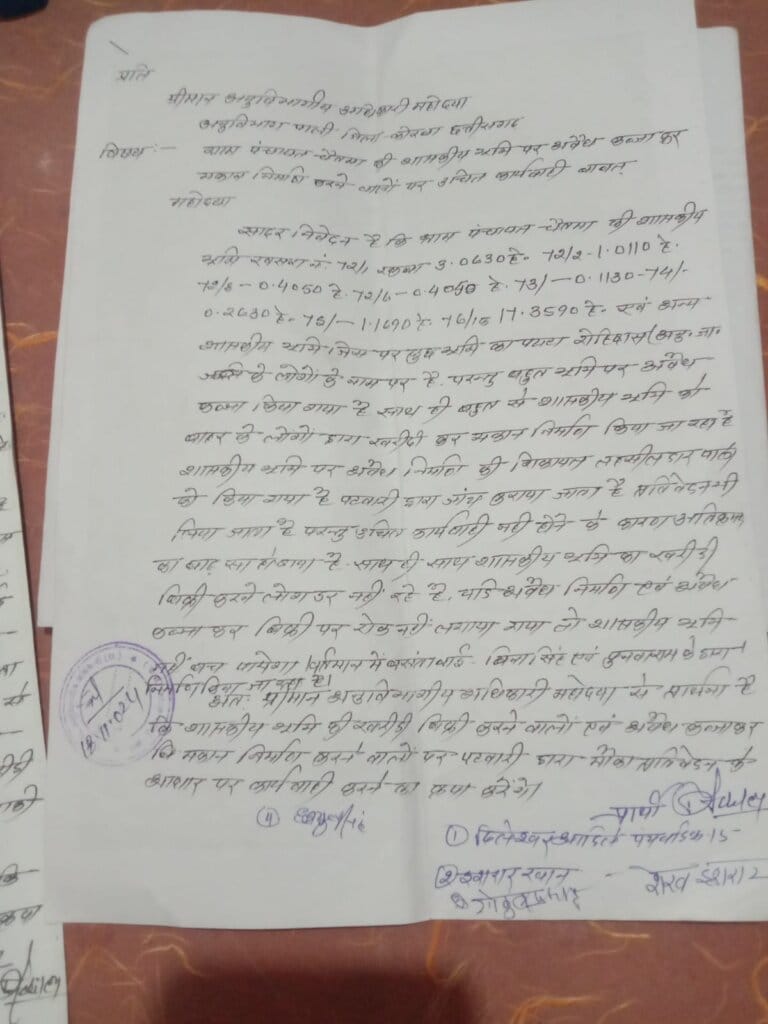 प्रति
श्रीमान अनुविभागीय अधिकारी महोदया
अनुविभाग पाली जिला कोरबा छत्तीसगढ़
विषय :- ग्राम पंचायत चैतमा की शासकीय भूमि पर अवैध कब्जा कर
मकान निर्माण करने वालों पर उचित कार्यवाही बावत्
महोदया
सादर निवेदन है कि ग्राम पंचायत चैतमा की शासकीय
भूमि खसरा नं. 72/1 रकबा 3.0630 हे. 72/2-1.0110 हे.
72/5-0.4050 हे. 72/6-0.4050 हे. 73/-0.1130-74/-
0.2630 हे. 75/-1.1690 हे. 76/1 17.3590 हे. एवं अन्य
शासकीय भूमि जिस पर कुछ भूमि का पट्टा रोहिदास (अनु. जा.
के लोगों के नाम पर है. परन्तु बहुत भूमि पर अवैध
कब्जा किया गया है साथ ही बहुत से शासकीय भूमि को
बाहर के लोगों द्वारा खरीदी कर मकान निर्माण किया जा रहा है
शासकीय भूमि पर अवैध निर्माण की शिकायत तहसीलदार पाली
को किया गया है पटवारी द्वारा जांच कराया जाता है प्रतिवेदन भी
लिया जाता है परन्तु उचित कार्यवाही नहीं होने के कारण अतिक्रमण
का बाढ़ सा हो गया है. साथ ही साथ शासकीय भूमि का खरीदी
बिक्री करने लोग डर नहीं रहे है. यदि अवैध निर्माण एवं अवैध
कब्जा कर बिक्री पर रोक नहीं लगाया गया तो शासकीय भूमि
नहीं बच पायेगा। वर्तमान में बसंता बाई. सिंह एवं के द्वारा
निर्माण किया जा रहा है।
अतः श्रीमान अनुविभागीय अधिकारी महोदया से प्रार्थना है
कि शासकीय भूमि की खरीदी बिक्री करने वालों एवं अवैध कब्जा कर
मकान निर्माण करने वालों पर पटवारी द्वारा मौका प्रतिवेदन के
आधार पर कार्यवाही करने का कृपा करेंगे।
18.11.024
प्रार्थी
① आदिले पंच वार्ड क्र 15
② खान - शेख
③
④